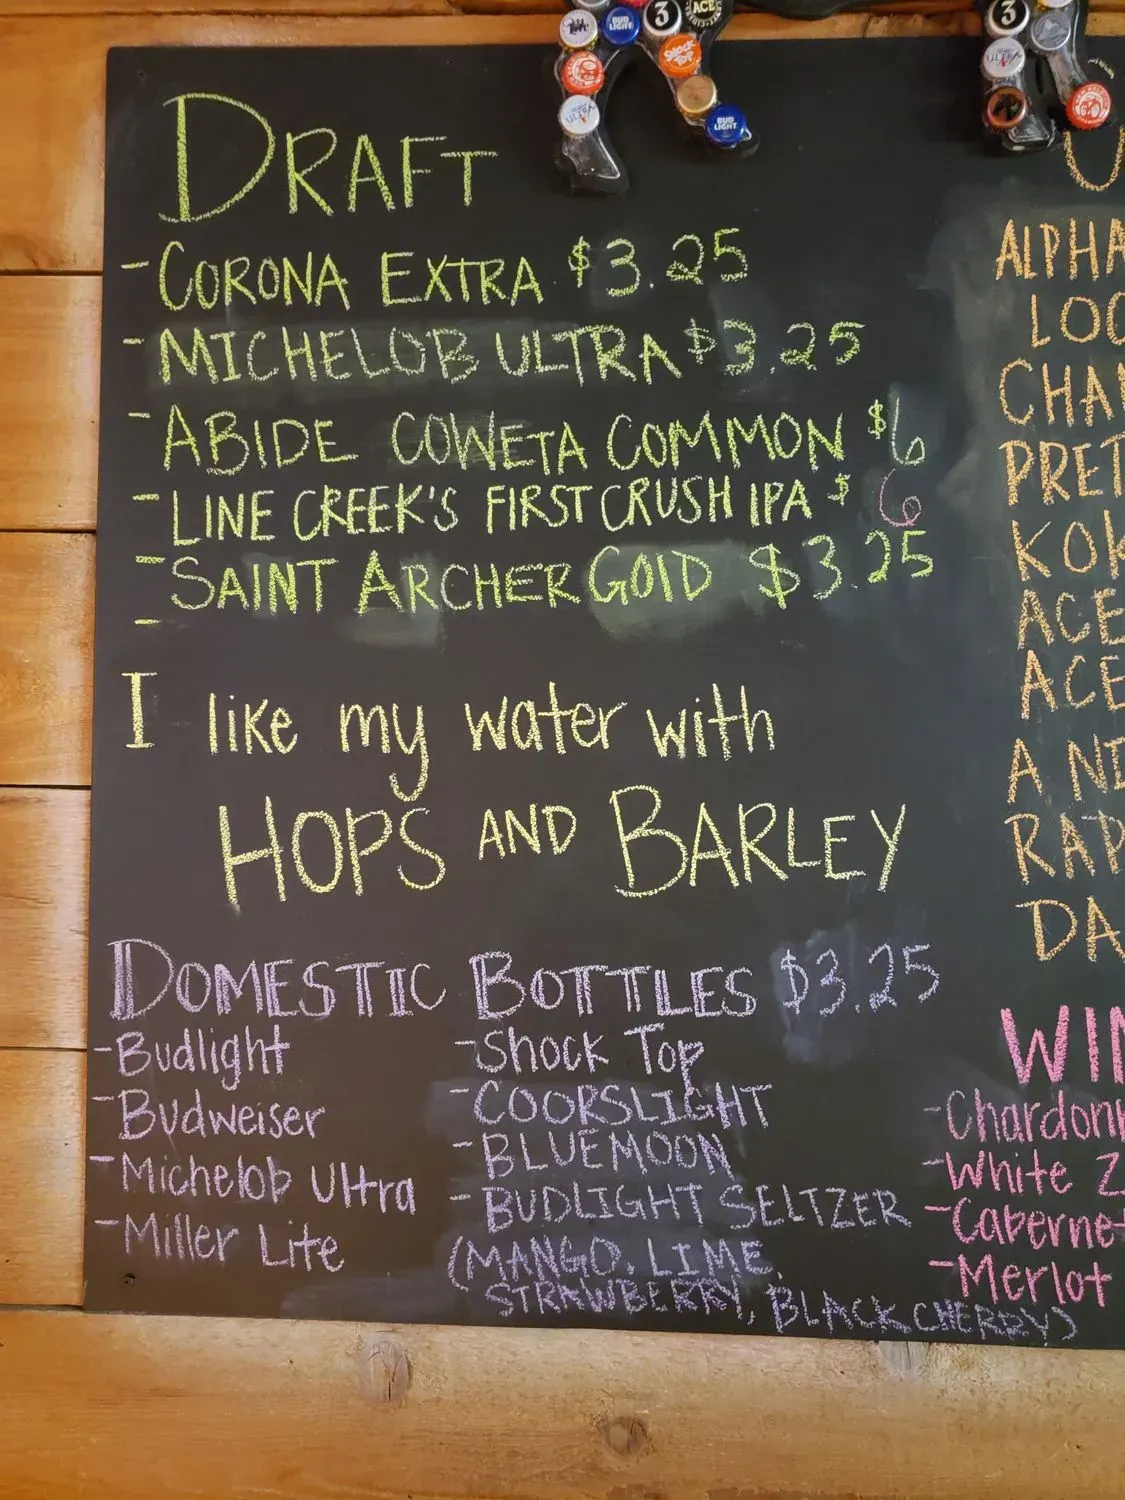 DRAFT
- CORONA EXTRA $3.25
- MICHELOB ULTRA $3.25
- ABIDE COWETA COMMON $6
- LINE CREEK'S FIRST CRUSH IPA $6
- SAINT ARCHER GOLD $3.25
-
I like my water with
HOPS AND BARLEY
DOMESTIC BOTTLES $3.25
- Budlight
- Budweiser
- Michelob Ultra
- Miller Lite
- Shock Top
- COORSLIGHT
- BLUEMOON
- BUDLIGHT SELTZER
(MANGO, LIME,
STRAWBERRY, BLACK CHERRY)
ALPHA
LOC
CHAM
PRET
KOK
ACE
ACE
AND
RAP
DA
WIN
- Chardonn
- White Z
- Cabernet
- Merlot
BUD LIGHT
3
ACE
SHOCK TOP
ULTRA
BUD LIGHT
3